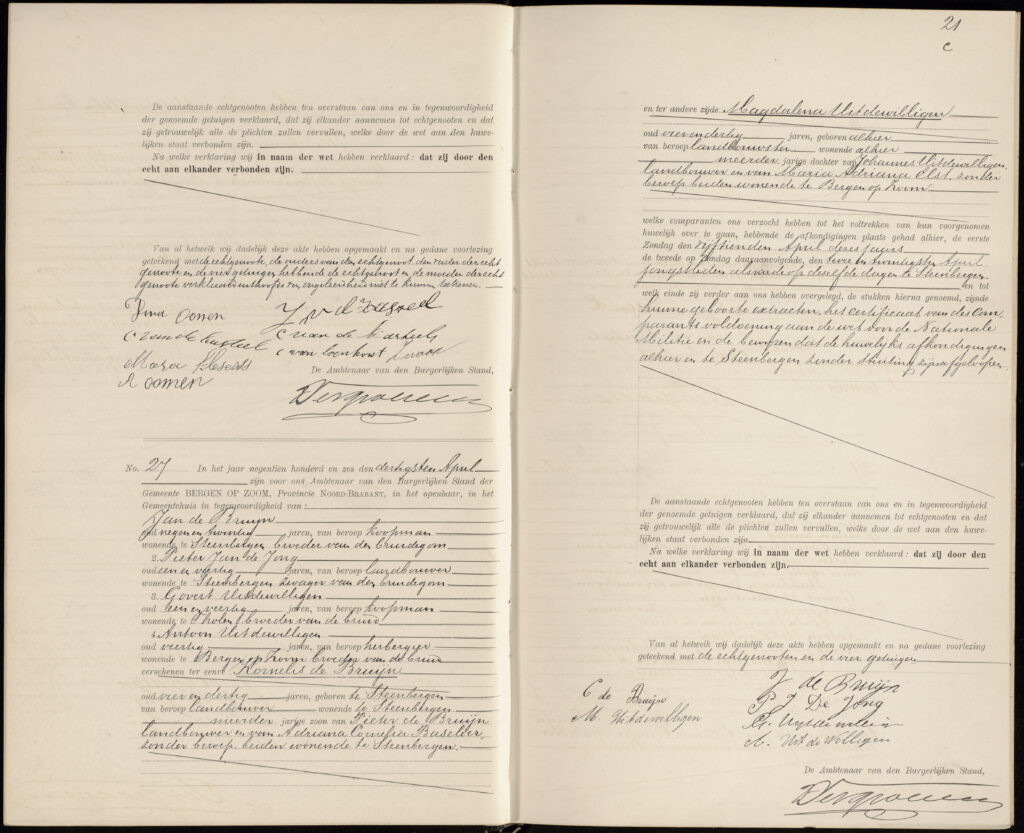 De aanstaande echtgenooten hebben ten overstaan van ons en in tegenwoordigheid
der genoemde getuigen verklaard, dat zij elkander aannemen tot echtgenooten en dat
zij getrouwelijk alle de plichten zullen vervullen, welke door de wet aan den huwe-
lijken staat verbonden zijn.
Na welke verklaring wij in naam der wet hebben verklaard: dat zij door den
echt aan elkander verbonden zijn.
Van al hetwelk wij dadelijk deze akte hebben opgemaakt en na gedane voorlezing
geteekend met de echtgenoote, de ouders van den echtgenoot, den vader der echt
genoote en de vier getuigen hebbende de echtgenoot en de moeder der echt
genoote verklaard uithoofde van ongeleerdheid niet te kunnen teekenen.
Dina Oomen
C van de Kasteel
C van de
C van Loenhout
Maria
A Oomen
De Ambtenaar van den Burgerlijken Stand,
No. 27 In het jaar negentien honderd en zes den dertigsten April
zijn voor ons Ambtenaar van den Burgerlijken Stand der
Gemeente BERGEN OP ZOOM, Provincie NOORD-BRABANT, in het openbaar, in het
Gemeentehuis in tegenwoordigheid van:
Jan de Bruijn
oud negen en twintig jaren, van beroep koopman
wonende te Steenbergen broeder van den bruidegom
2. Pieter Jan de Jong
oud een en veertig jaren, van beroep landbouwer
wonende te Steenbergen zwager van den bruidegom
3. Govert Uitdewilligen
oud een en veertig jaren, van beroep koopman
wonende te Tholen broeder van de bruid
4. Antoon Uitdewilligen
oud veertig jaren, van beroep herbergier
wonende te Bergen op Zoom broeder van de bruid
verschenen ter eenre Kornelis de Bruijn
oud vier en dertig jaren, geboren te Steenbergen
van beroep landbouwer wonende te Steenbergen
meerder jarige zoon van Pieter de Bruijn
landbouwer en van Adriana Cornelia Baselier,
zonder beroep beiden wonende te Steenbergen.
21
c
en ter andere zijde Magdalena Uitdewilligen
oud vier en dertig jaren, geboren alhier
van beroep landbouwster wonende alhier
meerder jarige dochter van Johannes Uitdewilligen,
landbouwer en van Maria Adriana Elst, zonder
beroep beiden wonende te Bergen op Zoom
welke comparanten ons verzocht hebben tot het voltrekken van hun voorgenomen
huwelijk over te gaan, hebbende de afkondigingen plaats gehad alhier, de eerste
Zondag den vijftienden April dezes jaars
de tweede op Zondag daaraanvolgende, den twee en twintigsten April
jongstleden alsmede op dezelfde dagen te Steenbergen
en tot
welk einde zij verder aan ons hebben overgelegd, de stukken hierna genoemd, zijnde
hunne geboorte extracten, het certificaat van des Com-
parants voldoening aan de wet voor de Nationale
Militie en de bewijzen dat de huwelijks afkondigingen
alhier en te Steenbergen zonder stuiting zijn afgeloopen.
De aanstaande echtgenooten hebben ten overstaan van ons en in tegenwoordigheid
der genoemde getuigen verklaard, dat zij elkander aannemen tot echtgenooten en dat
zij getrouwelijk alle de plichten zullen vervullen, welke door de wet aan den huwe-
lijken staat verbonden zijn.
Na welke verklaring wij in naam der wet hebben verklaard: dat zij door den
echt aan elkander verbonden zijn.
Van al hetwelk wij dadelijk deze akte hebben opgemaakt en na gedane voorlezing
geteekend met de echtgenooten en de vier getuigen
C de Bruijn
M Uitdewilligen
J de Bruijn
P J De Jong
A. Uit de Willigen
De Ambtenaar van den Burgerlijken Stand,